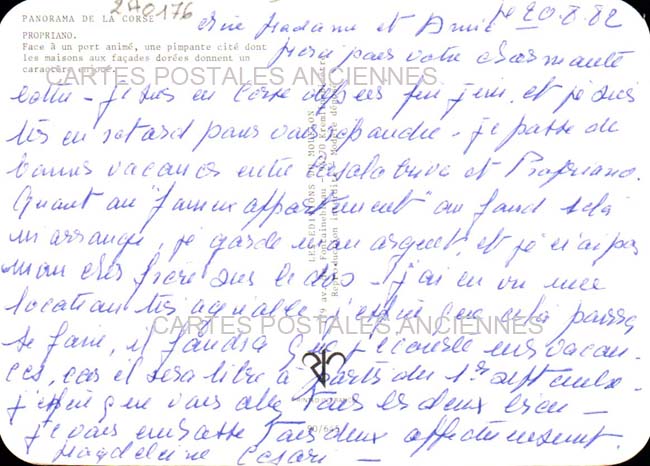 240176
PANORAMA DE LA CORSE
PROPRIANO.
Face à un port animé, une pimpante cité dont
les maisons aux façades dorées donnent un
caractère
le 20.8.82
Madame et Amie
pour votre charmante
CARTES POSTALES ANCIENNES
je suis en Corse depuis et je suis
très en retard pour vous répondre - je passe de
bonnes vacances entre et Propriano.
Quant au "fameux appartement" au fond cela
m'arrange, je garde mon argent, et je n'ai pas
mon cher frère sur le dos - j'ai en vue une
location très agréable j'espère que cela pourra
CARTES POSTALES ANCIENNES
se faire, il faudra que j'écourte mes vacan-
ces, car il sera libre à partir du 1er septembre.
j'espère que vous allez tous les deux bien -
je vous embrasse tous deux affectueusement.
Magdeleine Cesari -
LES EDITIONS DU MOUFLON